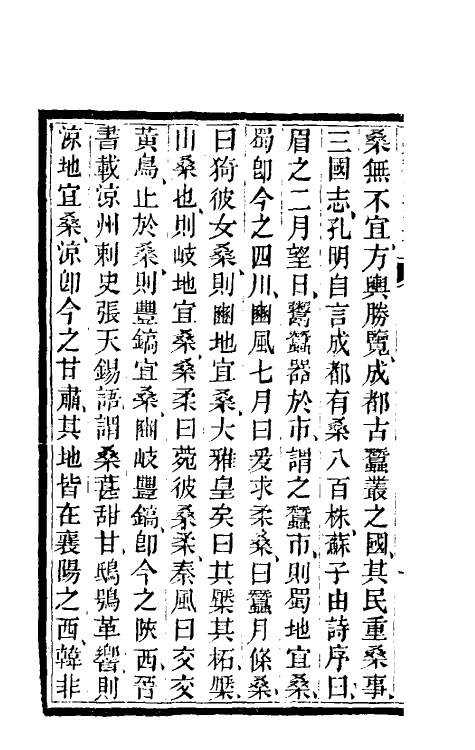 桑無不宜方輿勝覽成都古蠶叢之國其民重桑事
三國志孔明自言成都有桑八百株蘇子由詩序曰
眉之二月望日鬻蠶器於市謂之蠶市則蜀地宜桑
蜀卽今之四川豳風七月曰爰求柔桑曰蠶月條桑
曰猗彼女桑則豳地宜桑大雅皇矣曰其檿其柘檿
山桑也則岐地宜桑桑柔曰菀彼桑柔秦風曰交交
黃鳥止於桑則豐鎬宜桑豳岐豐鎬卽今之陝西晉
書載涼州刺史張天錫語謂桑葚甜甘鴟鴞革響則
涼地宜桑涼卽今之甘肅其地皆在襄陽之西韓非